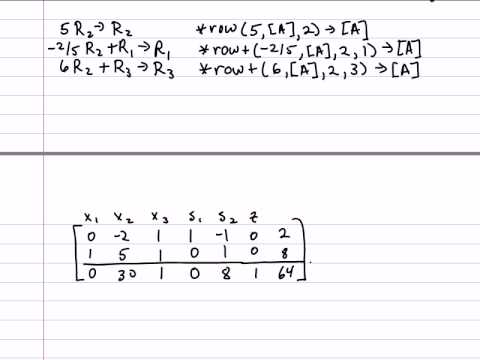 5R₂→R₂ *row(5,[A],2)→[A]
-2/5 R₂+R₁→R₁ *row+(-2/5,[A],2,1)→[A]
6R₂+R₃→R₃ *row+(6,[A],2,3)→[A]
x₁ x₂ x₃ s₁ s₂ z
0 -2 1 1 -1 0 2
1 5 1 0 1 0 8
0 30 1 0 8 1 64